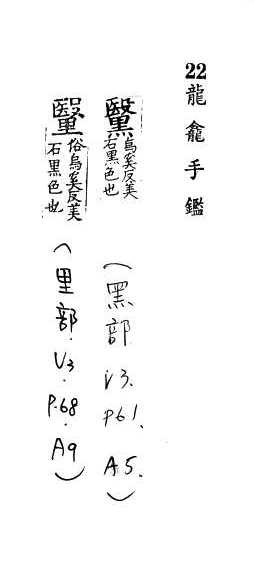 22 龍龕手鑑
黳 烏奚反美
石黑色也
(黑部 V3. P61. A5.)
俗烏奚反美
石黑色也
(里部. V3. P.68. A9)